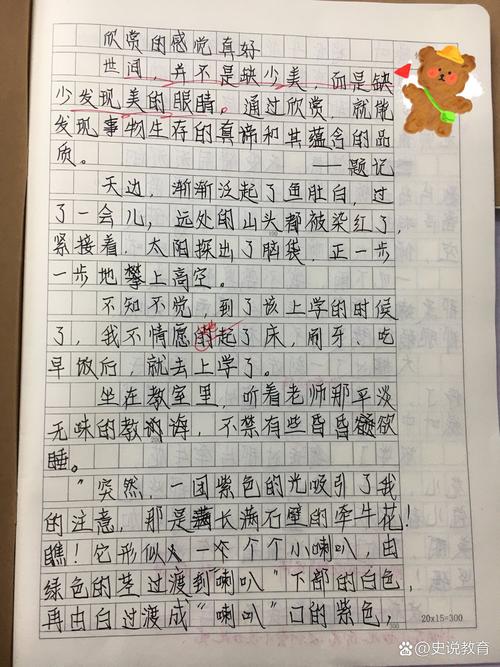 欣赏的感觉真好
世间，并不是缺少美，而是缺
少发现美的眼睛。通过欣赏，就能
发现事物生存的真谛和其蕴含的品
质。
——题记
天边，渐渐泛起了鱼肚白，过
了一会儿，远处的山头都被染红了，
紧接着，太阳探出了脑袋，正一步
一步地攀上高空。
不知不觉，到了该上学的时候
了，我不情愿的起了床，刷牙、吃
早饭后，就去上学了。
坐在教室里，听着老师那平淡
无味的教诲，不禁有些昏昏欲
睡。
"突然，一团紫色的光吸引了我
的注意，那是长满石壁的牵牛花！
瞧！它形似一个个小喇叭，由
绿色的茎过渡到"喇叭"下部的白色，
再由白过渡成"喇叭"口的紫色，
20×15=300
@史说教育